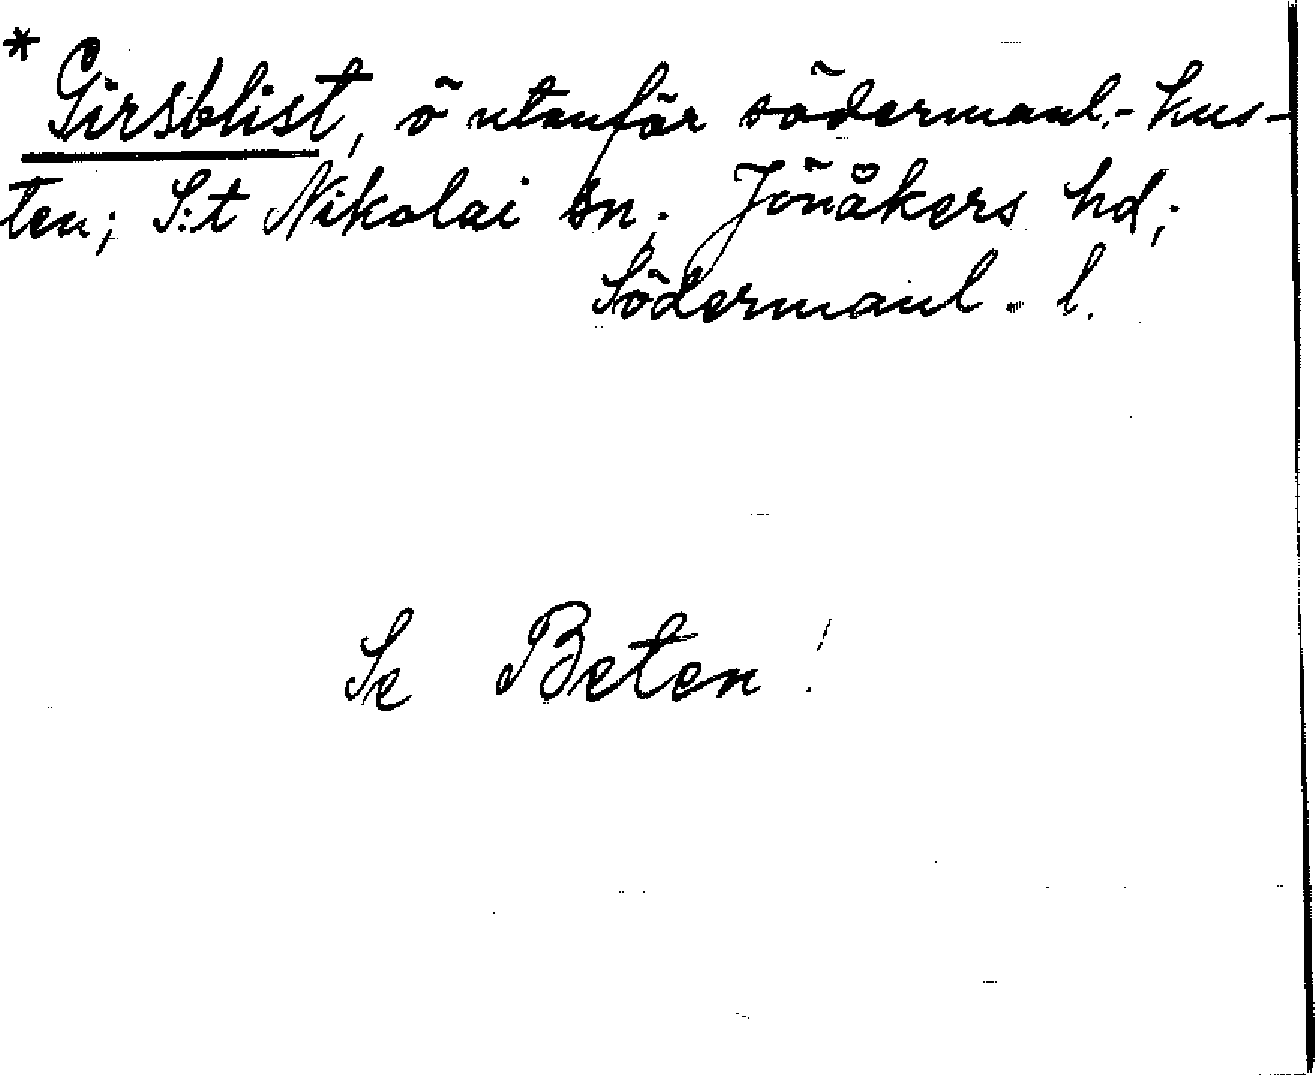 * Girsblist, ö utanför södermanl.-kus-
ten; S:t Nikolai sn. Jönåkers hd;
Södermanl. l.
Se Beten!